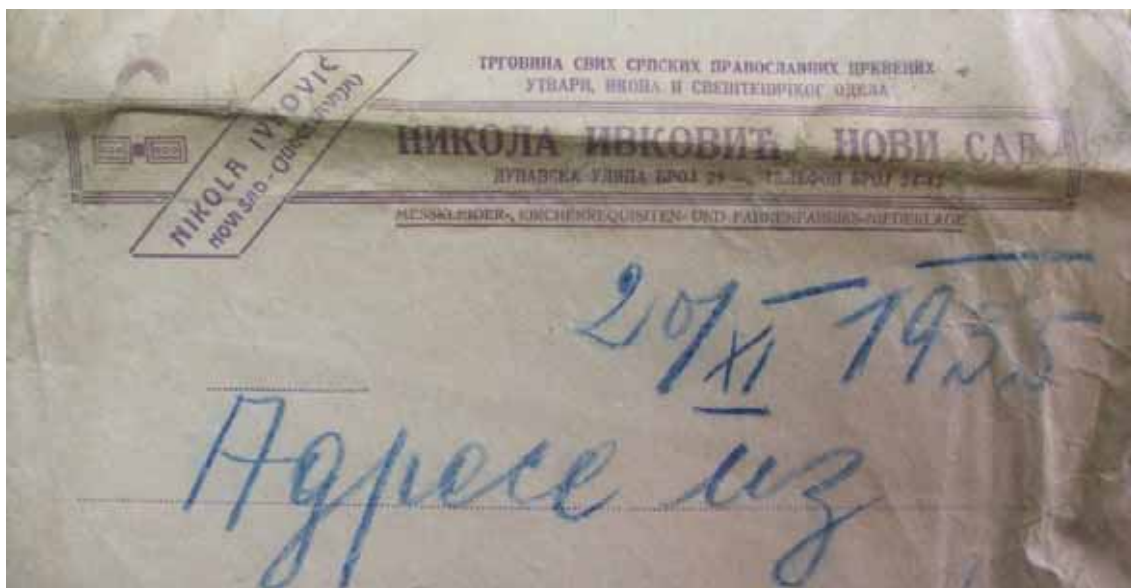 ТРГОВИНА СВИХ СРПСКИХ ПРАВОСЛАВНИХ ЦРКВЕНИХ
УТВАРИ, ИКОНА И СВЕШТЕНИЧКОГ ОДЕЛА
NIKOLA IVKOVIĆ
NOVI SAD -
НИКОЛА ИВКОВИЋ, НОВИ САД
ДУНАВСКА УЛИЦА БРОЈ 29 — ТЕЛЕФОН БРОЈ
MESSKLEIDER-, KIRCHENREQUISITEN- UND FAHNENFABRIKS-NIEDERLAGE
20/XI 1935
Адресе из